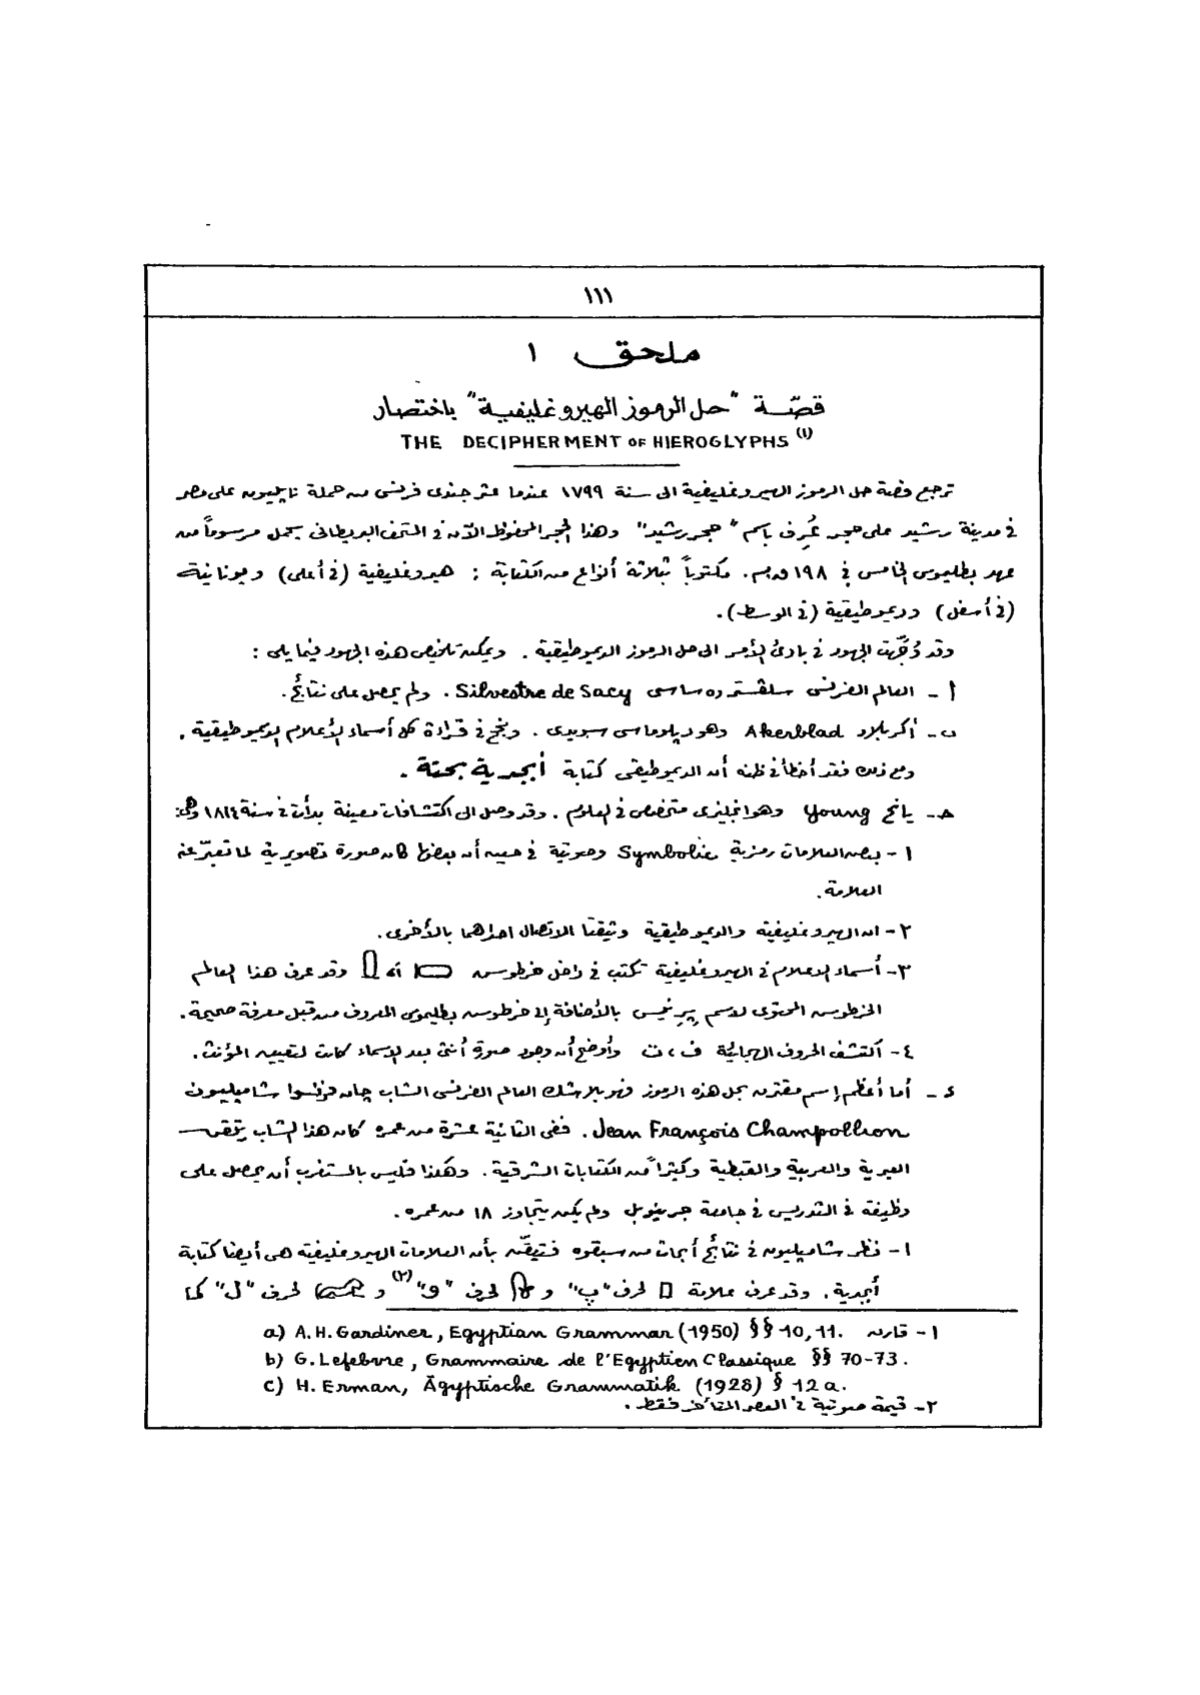 ١١١
ملحق ١
قصّة "حل الرموز الهيروغليفية" باختصار
THE DECIPHERMENT OF HIEROGLYPHS (١)
ترجع قصة حل الرموز الهيروغليفية الى سنة ١٧٩٩ عندما عثر جندى فرنسى من حملة نابليون على مصر
فى مدينة رشيد على حجر عُرِف باسم "حجر رشيد" وهذا الحجر المحفوظ الآن فى المتحف البريطانى يحمل مرسوماً من
عهد بطليموس الخامس فى ١٩٨ ق.م. مكتوباً بثلاثة أنواع من الكتابة : هيروغليفية (فى أعلى) ويونانية
(فى أسفل) وديموطيقية (فى الوسط).
وقد وُجِّهت الجهود فى بادئ الأمر الى حل الرموز الديموطيقية . ويمكن تلخيص هذه الجهود فيما يلى :
أ - العالم الفرنسى سلفستر ده ساسى Silvestre de Sacy . ولم يحصل على نتائج .
ب - أكربلاد Akerblad وهو ديبلوماسى سويدى . ونجح فى قراءة كل أسماء الأعلام الديموطيقية .
ومع ذلك فقد أخطأ فى ظنه أن الديموطيقى كتابة أبجدية بحتة .
حـ - يانج Young وهو انجليزى متخصص فى العلوم . وقد وصل الى اكتشافات معينة بدأت فى سنة ١٨١٤ وهى :
١ - بعض العلامات رمزية Symbolic وصوتية فى حين أن بعضها كان صورة تصويرية لما تعبّر عنه
العلامة .
٢ - ان الهيروغليفية والديموطيقية وثيقتا الاتصال احداهما بالأخرى .
٣ - أسماء الاعلام فى الهيروغليفية تكتب فى داخل خرطوش أو وقد عرف هذا العالم
الخرطوش المحتوى لاسم بِيرنيس بالأضافة إلى خرطوش بطليموس المعروف من قبل معرفة صحيحة .
٤ - اكتشف الحروف الهجائية ف ، ت وأوضح أن وجود صورة أنثى بعد الاسماء كانت لتعيين المؤنث .
د - أما أعظم إسم مقترن بحل هذه الرموز فهو بلا شك العالم الفرنسى الشاب چان فرنسوا شامپليون
Jean François Champollion . ففى الثانية عشرة من عمره كان هذا الشاب يتقن
العبرية والعربية والقبطية وكثيراً من الكتابات الشرقية . وهكذا فليس بالمستغرب أن يحصل على
وظيفة فى التدريس فى جامعة جرينوبل ولم يكن يتجاوز ١٨ من عمره .
١ - نظر شامپليون فى نتائج أبحاث من سبقوه فتيقّن بأن العلامات الهيروغليفية هى أيضا كتابة
أبجدية . وقد عرف علامة لحرف "پ" و لحرف "و" (٢) و لحرف "ل" كما
١ - قارن a) A.H. Gardiner, Egyptian Grammar (1950) §§ 10, 11.
b) G. Lefebvre, Grammaire de l'Egyptien Classique §§ 70-73.
c) H. Erman, Ägyptische Grammatik (1928) § 12 a.
٢ - قيمة صوتية فى العصر المتأخر فقط .